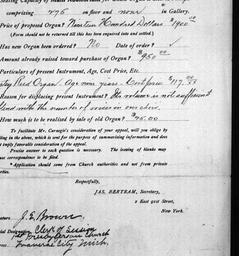 comprising 475 on floor and none in Gallery.
Price of proposed Organ? Nineteen Hundred Dollars $1900.00
(Form should not be returned till this has been enquired into and settled.)
Has new Organ been ordered? No Date of order? ✓
Amount already raised toward purchase of Organ? $950.00
Particulars of present Instrument, Age, Cost Price, Etc.
Reed Organ. Age nine years. Cost price $117
Reason for displacing present Instrument? The volume is not sufficient
with the number of voices in our choir.
How much is to be realised by sale of old Organ? $75.00
To facilitate Mr. Carnegie's consideration of your appeal, will you be obliging
in the above, which is sent for the purpose of summarising information and
imply favorable consideration of the appeal.
Precise answer to each question is necessary. The issuing of blanks may
correspondence to be filed.
* Application should be from Church authorities and not from private
Respectfully,
JAS. BERTRAM, Secretary,
2 East 91st Street,
New York.
J. E. Brown
Clerk of Session
Presbyterian Church
Traverse City Mich.